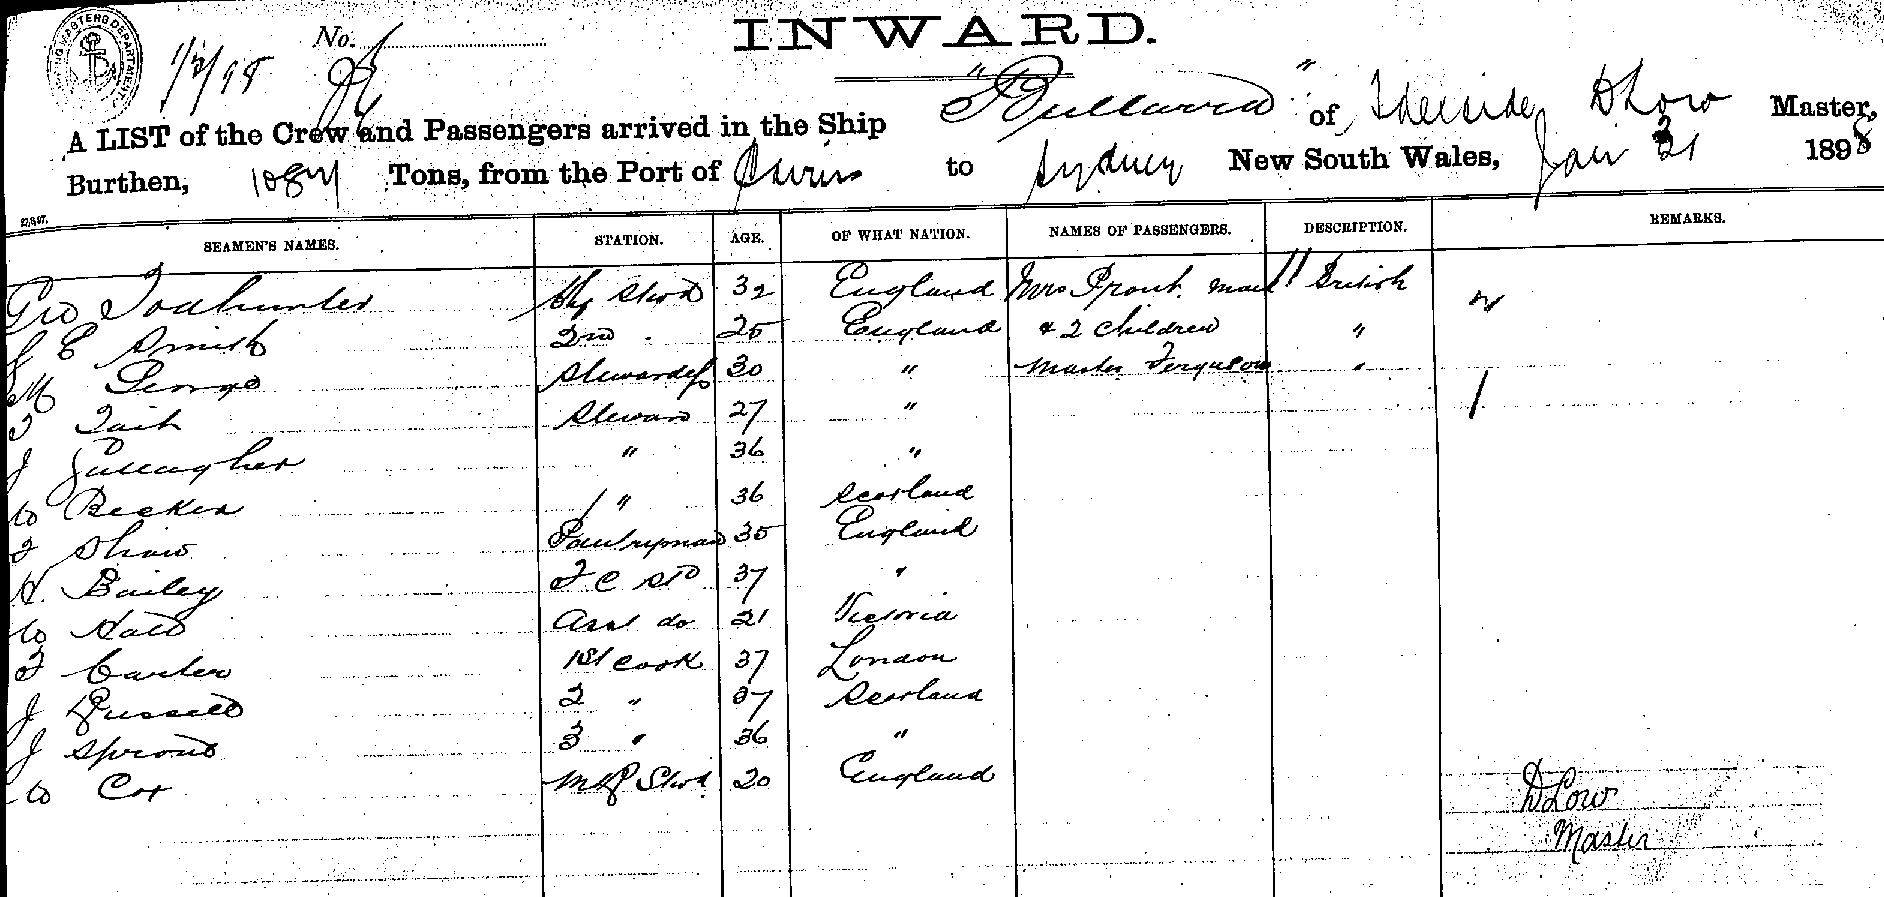 INWARD.
No.
1/2/98
A LIST of the Crew and Passengers arrived in the Ship "Bullarra" of Adelaide, D Low Master,
Burthen, Tons, from the Port of Cairns to Sydney New South Wales, Jan 31 1898
SEAMEN'S NAMES. STATION. AGE. OF WHAT NATION. NAMES OF PASSENGERS. DESCRIPTION. REMARKS.
Geo Todhunter Chf Stwd 32 England Mrs Prout British
J E Smith 2nd 25 England & 2 Children "
M George Stewardess 30 " Master Ferguson "
T Tait Steward 27 " 1
J Gallagher " 36 "
W Becker " 36 Scotland
T Shaw Pantryman 35 England
H Bailey F C Std 37 "
W Asst do 21 Victoria
T Carter 1st Cook 37 London
J Russell 2 " 37 Scotland
J Sprout 3 " 36 "
W Cox Stwd 20 England
D Low
Master